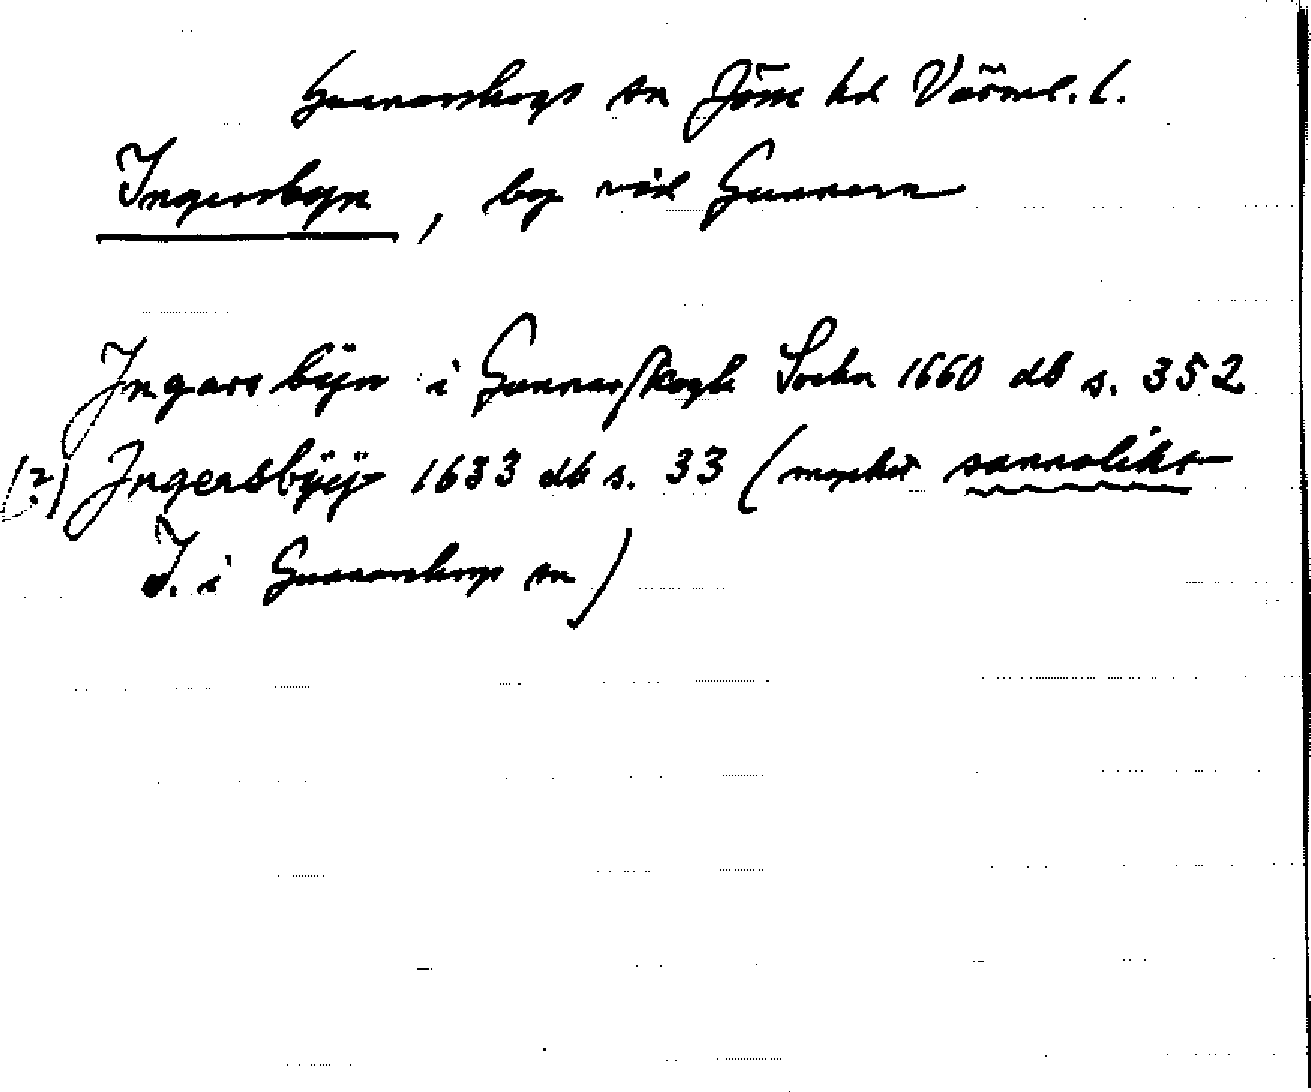 Gunnarskogs sn Jösse hd Värml. l.
Ingersbyn, by vid Gunnarn
Ingars bÿn i Gunnarskogh Sochn 1660 db s. 352
(?) Ingersbÿÿ 1633 db s. 33 (mycket sannolikt
I. i Gunnarskogs sn)